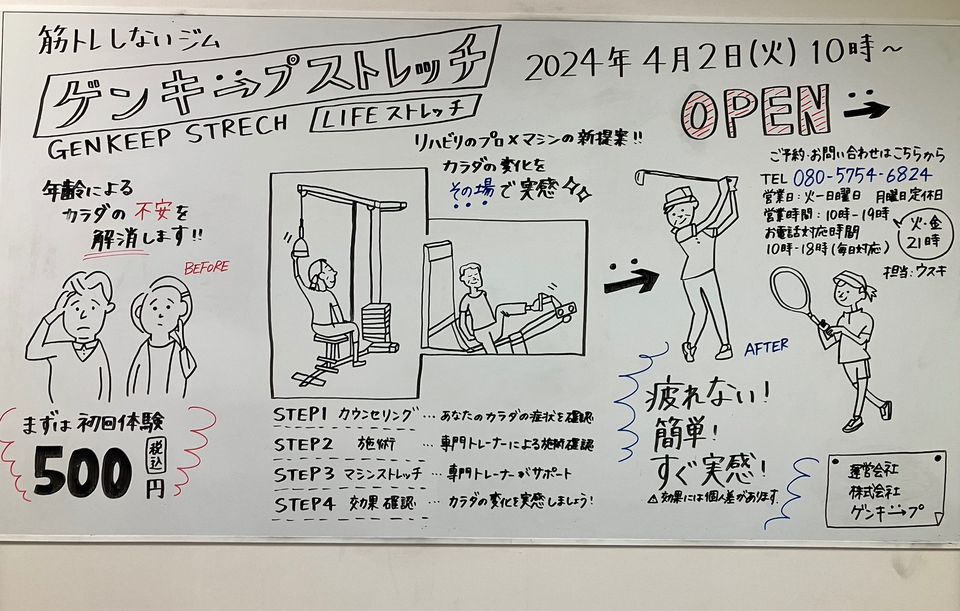 筋トレしないジム
ゲンキープストレッチ
GENKEEP STRECH
LIFEストレッチ
2024年4月2日(火)10時~
OPEN
リハビリのプロ×マシンの新提案!!
カラダの変化を
その場で実感
ご予約・お問い合わせはこちらから
TEL 080-5754-6824
営業日:火-日曜日 月曜日定休日
営業時間:10時-19時
火・金
21時
お電話対応時間
10時-18時(毎日対応)
担当:ウスキ
年齢による
カラダの不安を
解消します!!
BEFORE
AFTER
まずは初回体験
500円
税込
STEP1 カウンセリング…あなたのカラダの症状を確認
STEP2 施術 …専門トレーナーによる施術確認
STEP3 マシンストレッチ…専門トレーナーがサポート
STEP4 効果確認 …カラダの変化を実感しましょう!
疲れない!
簡単!
すぐ実感!
⚠効果には個人差があります。
運営会社
株式会社
ゲンキープ